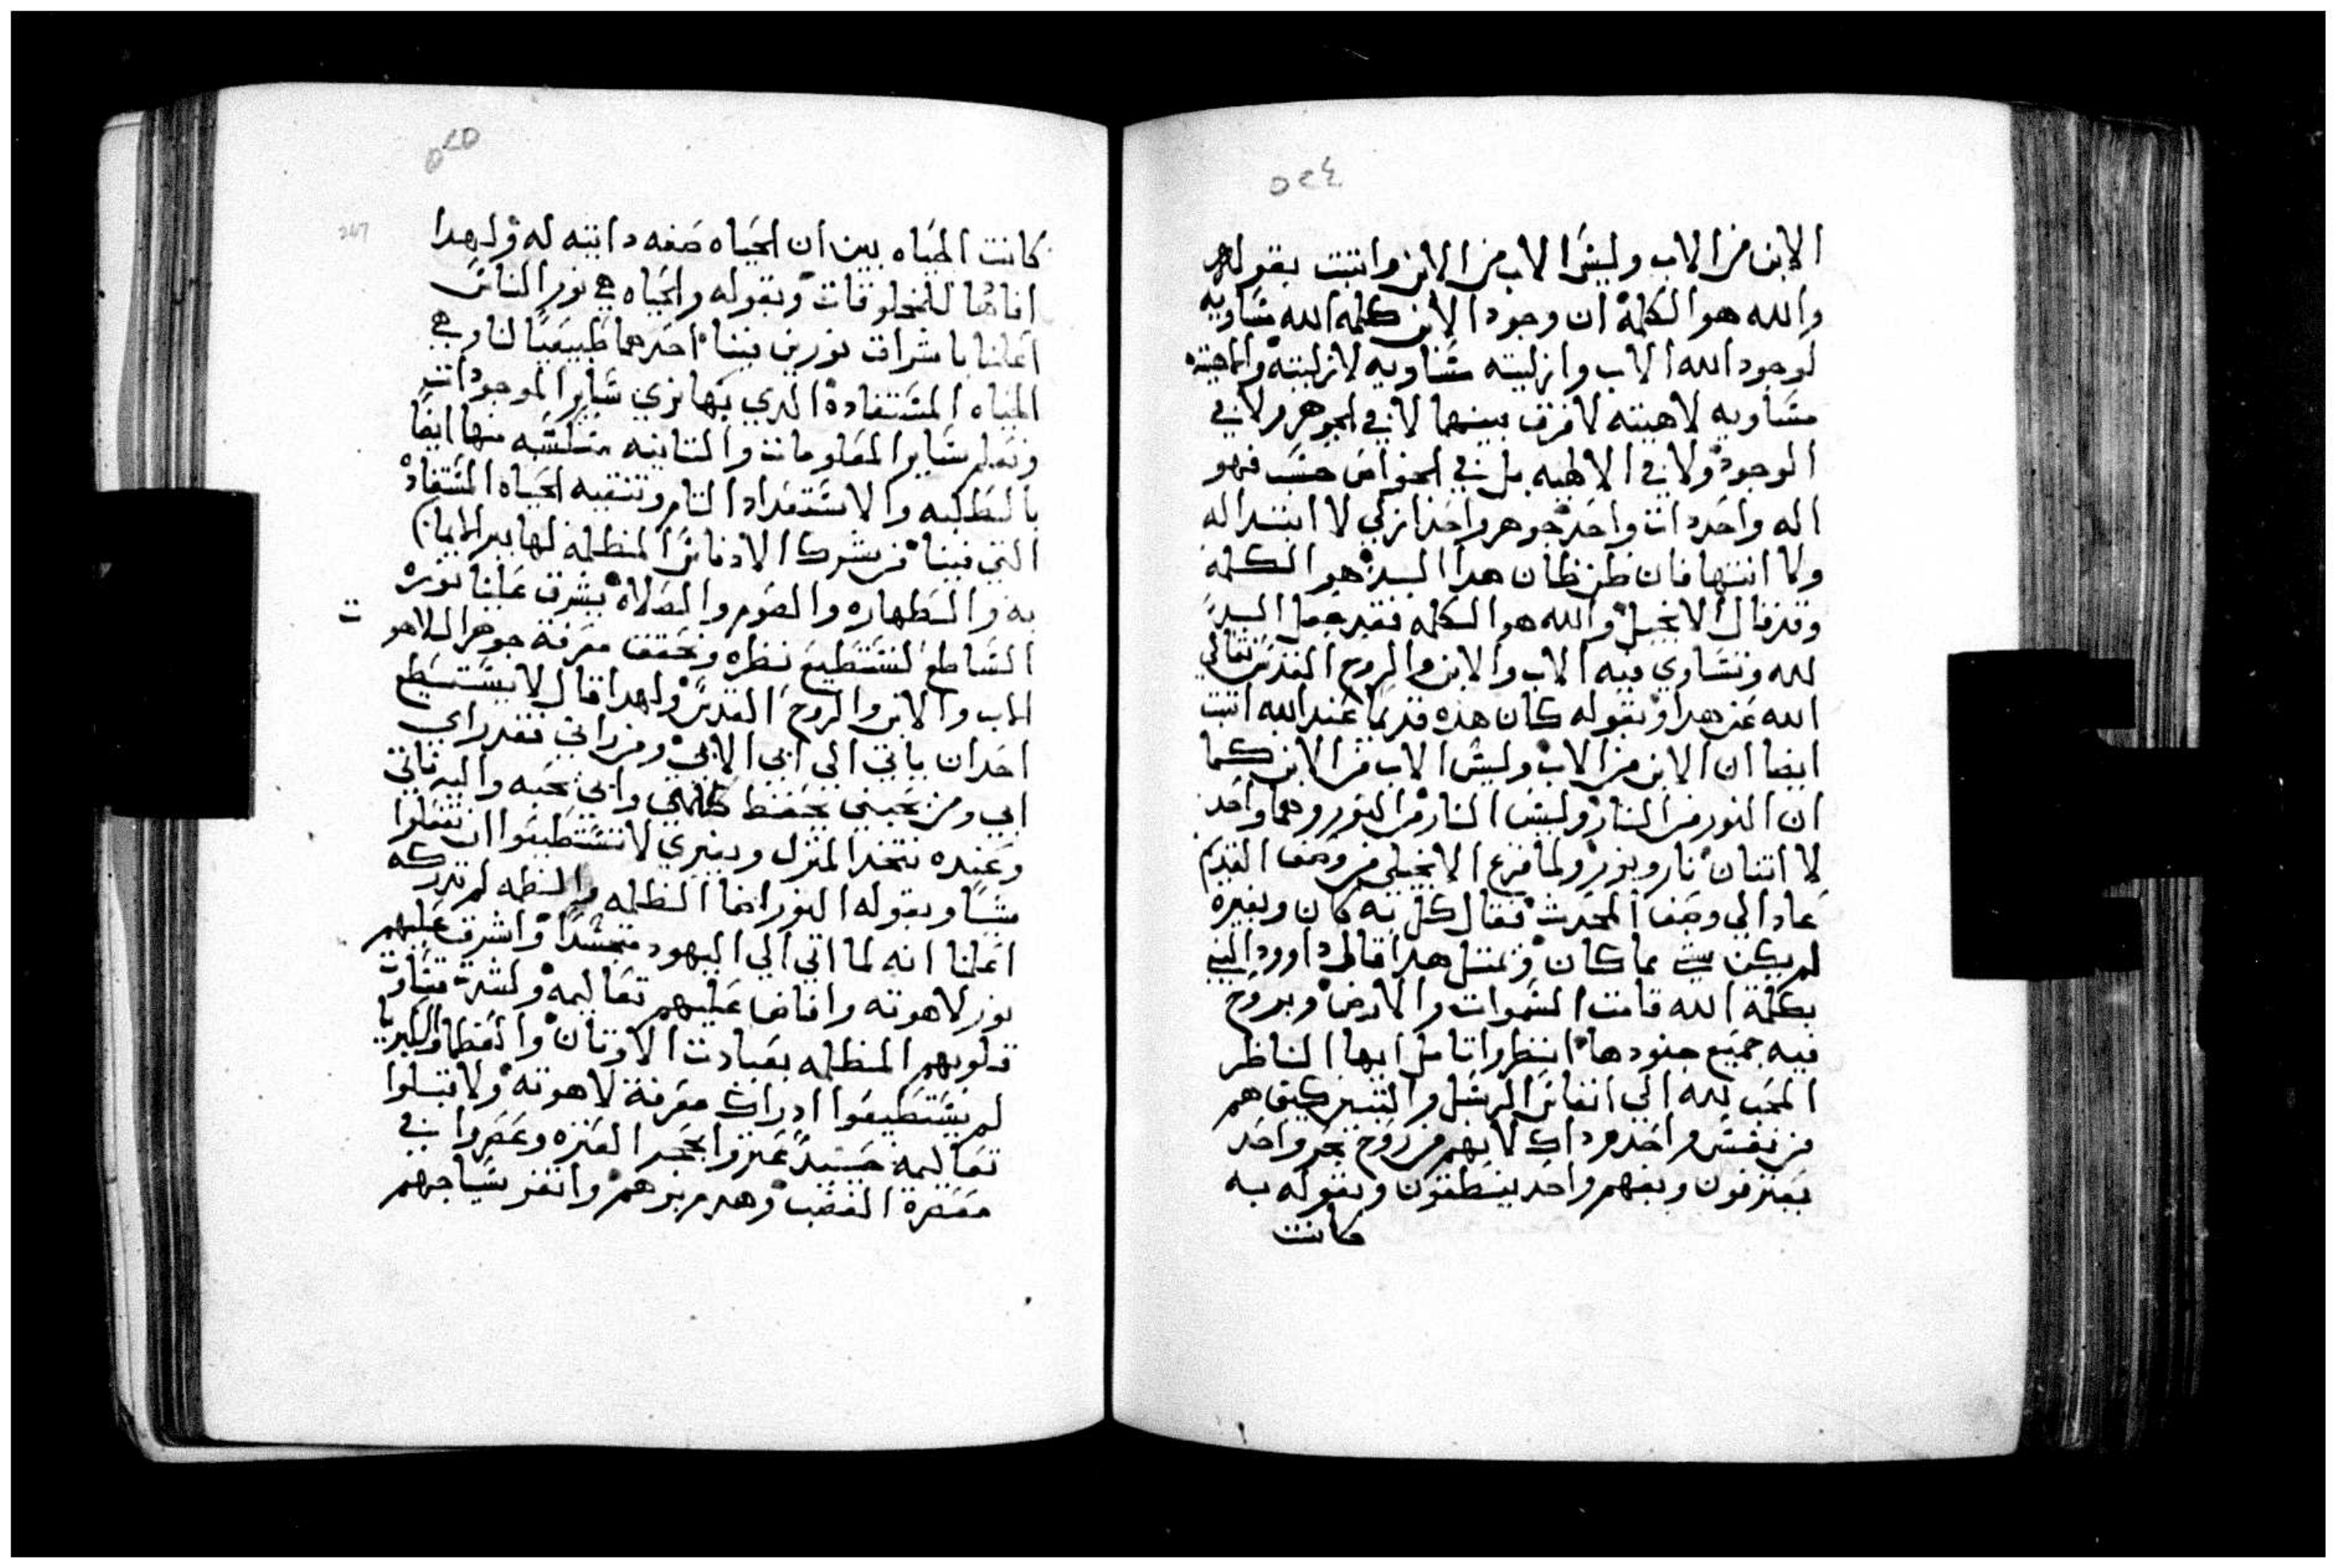 ٥٢٤
الابن من الاب وليس الاب من الابن واتبت بقوله
والله هو الكلمة ان وجود الابن كلمة الله مساويه
لوجود الله الاب وازليته مساويه لازليته والاهيته
مساويه لاهيته لا فرق بينهما لا في الجوهر ولا في
الوجود ولا في الالهيه بل في الخواص حسب فهو
اله واحد دات واحد جوهر واحد ازلي لا ابتدا له
ولا انتها فان ظن ظان هدا السيد هو الكلمه
وقد قال الانجيل والله هو الكلمه فقد جعل السيد
لله وتساوي فيه الاب والابن والروح القدس تعالي
الله عن هدا وبقوله كان هذه قديما عند الله اتبت
ايضا ان الابن من الاب وليس الاب من الابن كما
ان النور من النار وليس النار من النور وهما واحد
لا اتنان نار ونور ولما فرغ الانجيلي من وصف القديم
عاد الي وصف المحدث فقال كل به كان وبغيره
لم يكن شي مما كان وبمتل هدا قال داوود النبي
بكلمة الله قامت السموات والارض وبروح
فيه جميع جنودها انظر وتامل ايها الناظر
المحب لله الي انفاس الرسل والتبشير كيف هم
من نفس واحد ودلك لانهم من روح بحر واحد
يعترفون وبفهم واحد ينطقون وبقوله به
كانت
٥٢٥
247
كانت الحياه بين ان الحياه صفه داتيه له ولهدا
افاضها للمخلوقات وبقوله والحياه هي نور الناس
اعلنا باشراق نورين فينا احدهما طبيعيا لنا وهي
الحياه المستفادة الدي بها نري ساير الموجودات
ونعلم ساير المعلومات والتانيه مكتسبه منها ايضا
بالطلبه والاستعداد التام وتنقيه الحياه المستفاد
التي فينا من شرك الادناس المظلمة لها بالايمان
به والطهاره والصوم والصلاة يشرق علينا نوره
الساطع لنستطيع نظره ونحقق معرفة جوهر اللاهو
ت
الاب والابن والروح القدس ولهدا قال لا يستطيع
احد ان ياتي الي ابي الا بي ومن راني فقد راي
ابي ومن يحبني يحفظ كلامي وابي يحبه واليه ناتي
وعنده نتخد المنزل وبغيري لا تستطيعوا ان تفعلوا
شيا وبقوله النور اضا الظلمه والظلمه لم تدركه
اعلنا انه لما اتي الي اليهود متجسدا واشرق عليهم
نور لاهوته وافاض عليهم تعاليمه ولشدة قساوة
قلوبهم المظلمه بعبادت الاوتان والعظما والكبريا
لم يستطيعوا ادراك معرفة لاهوته ولا قبلوا
تعاليمه حسدا عتروا بحجر العتره وعصروا في
معصرة الغضب وهدم برجهم وانقض سياجهم